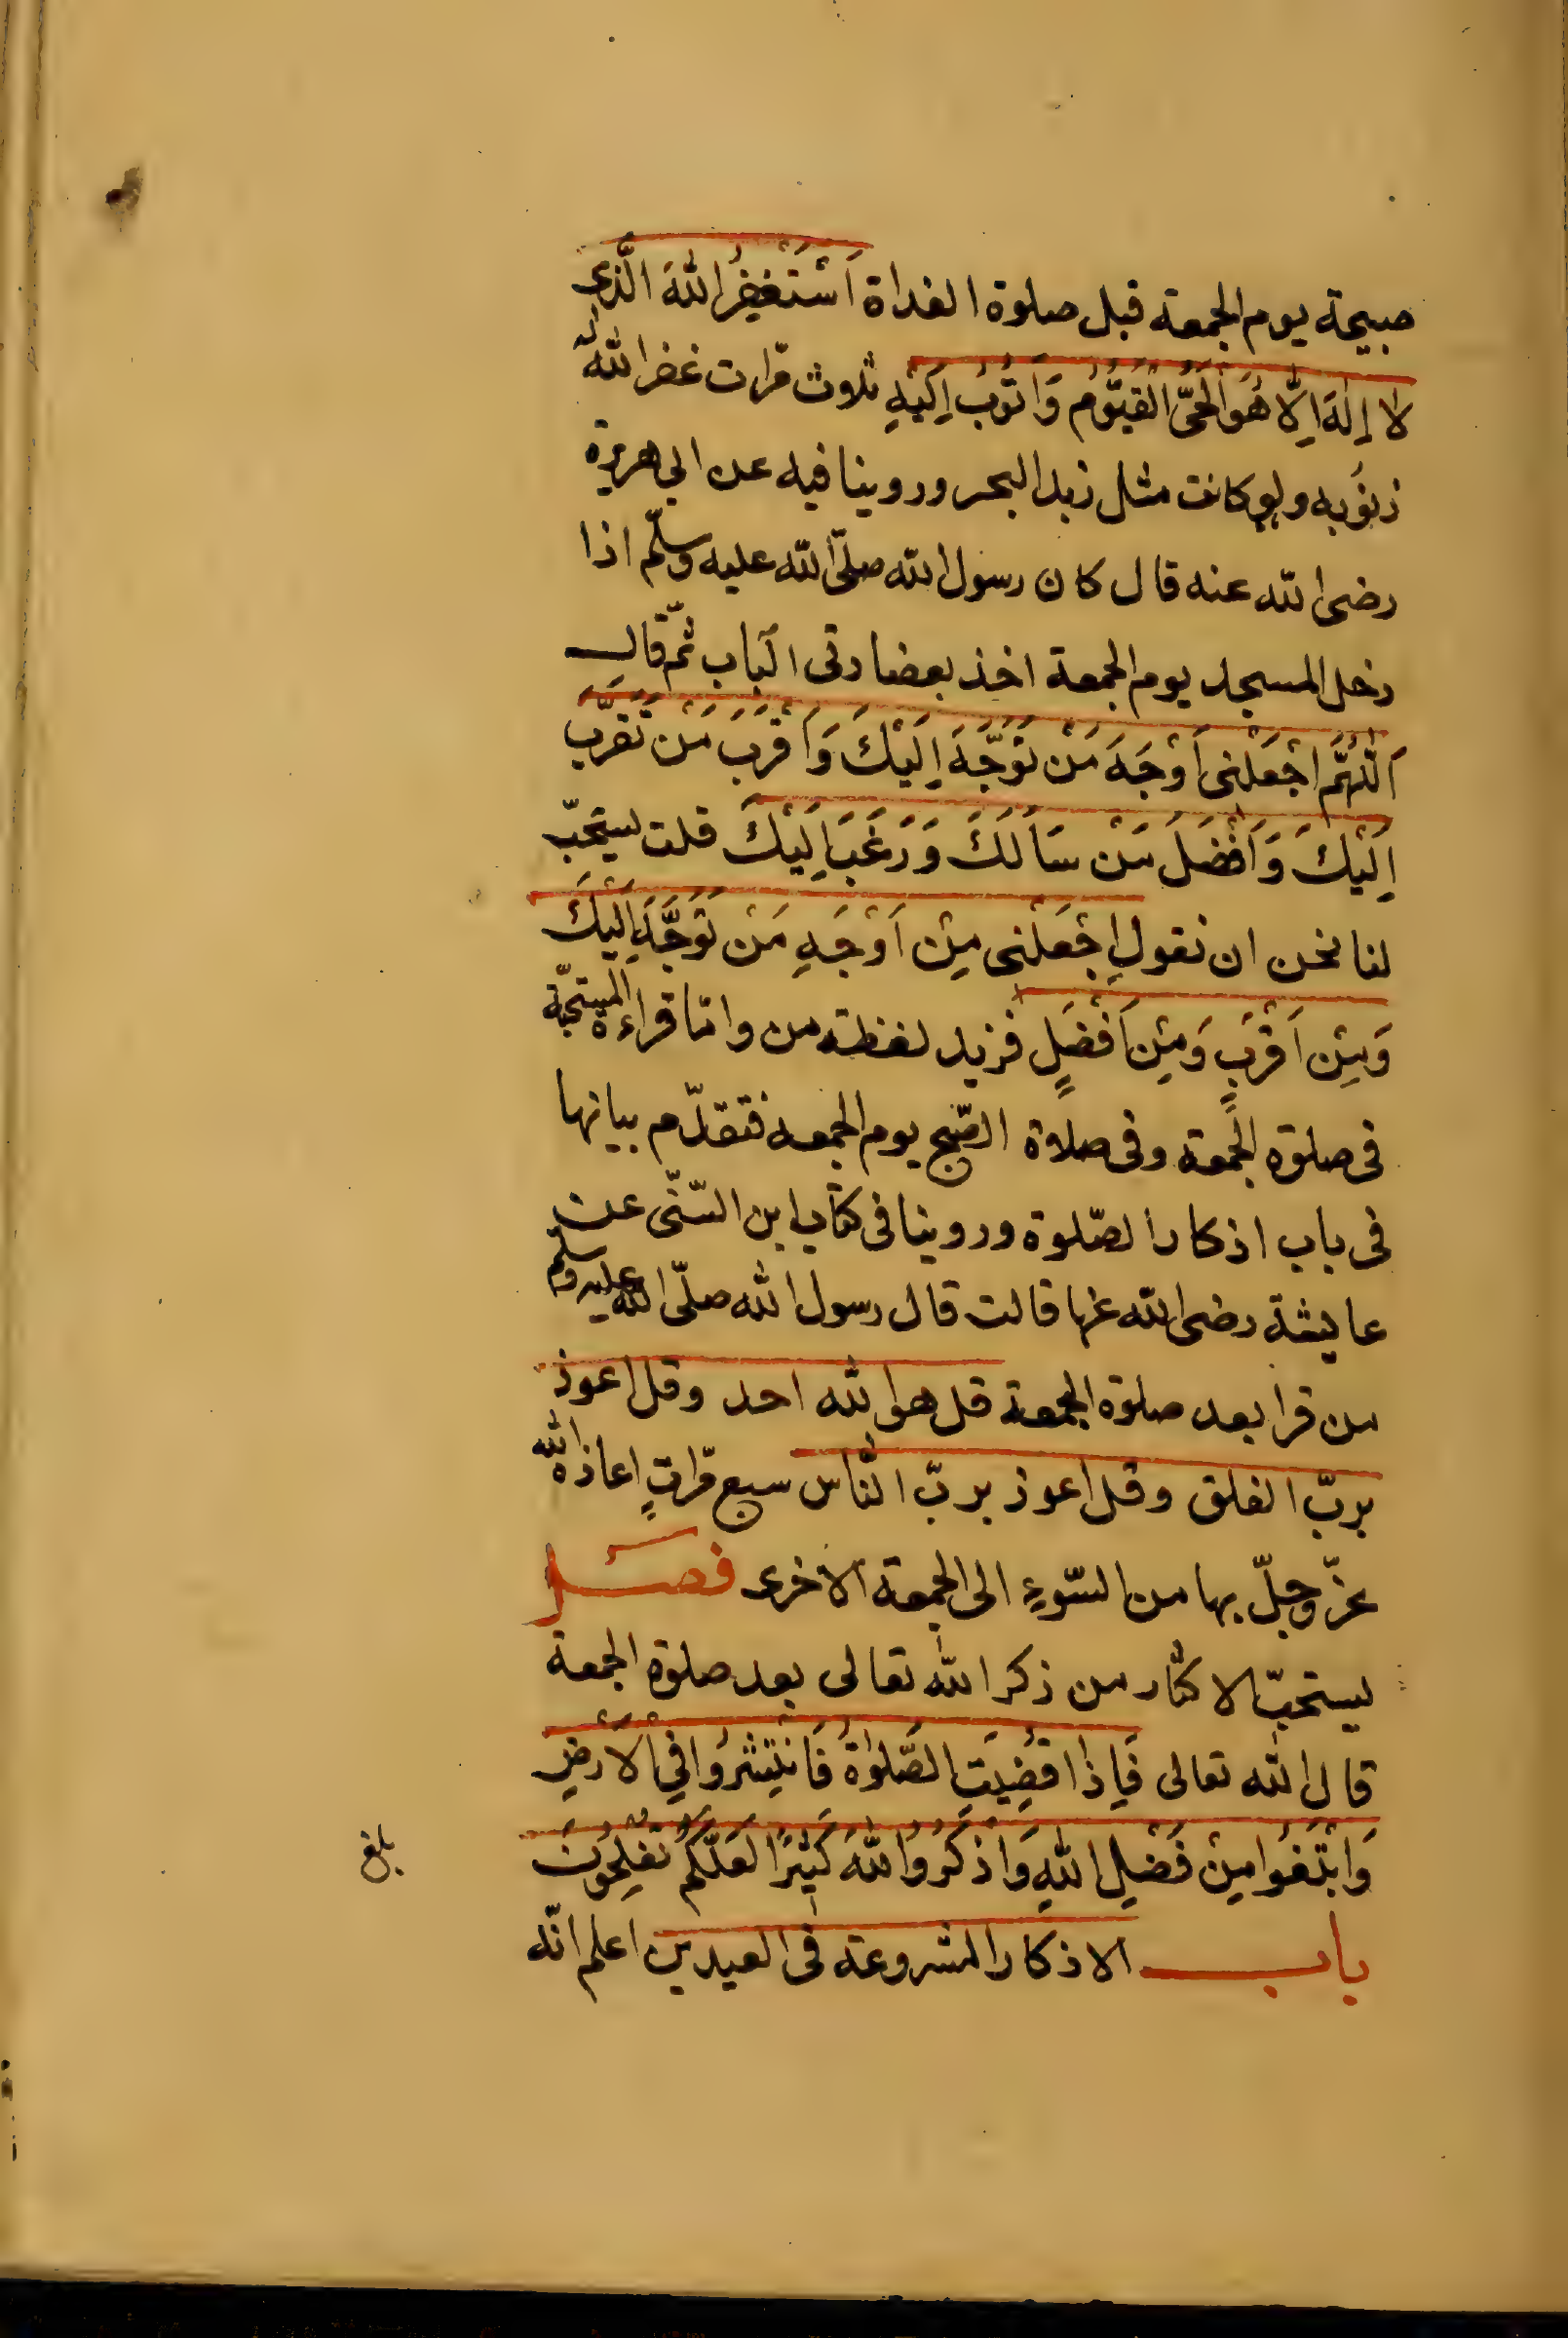 صبيحة يوم الجمعة قبل صلوة الغداة اَسْتَغْفِرُ اللهَ الَّذى
لا إلهَ اِلاَّ هُوَ الْحَىُّ الْقَيُّوُم وَاَتُوبُ اِلَيْهِ ثلوث مرّات غفر الله له
ذنوُبه ولو كانت مثل زبد البحر وروينا فيه عن ابى هريرة
رضى الله عنه قال كان رسول الله صلّى الله عليه وسلّم اذا
دخل المسجد يوم الجمعة اخذ بعضادتى الباب ثمّ قال
اَللّهُمَّ اجْعَلْنى اَوْجَهَ مَنْ تَوَجَّهَ اِلَيْكَ وَاَقْرَبَ مَنْ تَقَرَّبَ
اِلَيْكَ وَاَفْضَلَ مَنْ سَاَلَكَ وَرَغَبَ اِلَيْكَ قلت يستحبّ
لنا نحن ان نقول اِجْعَلْنى مِنْ اَوْجَهِ مَنْ تَوَجَّهَ اِلَيْكَ
وَمِنْ اَقْرَبِ وَمِنْ اَفْضَلِ فنزيد لفظته من وامّا قراءة المستحبّة
فى صلوة الجمعة وفى صلاة الصّبح يوم الجمعه فتقدّم بيانها
فى باب اذكار الصّلوة وروينا فى كتاب ابن السّنّى عن
عايشة رضى الله عنها قالت قال رسول الله صلّى الله عليه وسلم
من قرا بعد صلوة الجمعة قل هو الله احد وقل اعوذ
بربّ الفلق وقل اعوذ بربّ النّاس سبع مرّاتٍ اعاذه الله
عزّ وجلّ بها من السّوءِ الى الجمعة الاخرى فصل
يستحبّ الاكثار من ذكر الله تعالى بعد صلوة الجمعة
قال الله تعالى فَاِذا قُضِيَتِ الصَّلوٰةُ فَانْتَشِرُوا فِى الْاَرْضِ
وَابْتَغُوا مِنْ فَضْلِ اللهِ وَاذْكُرُوا اللهَ كَثِيرًا لَعَلَّكُمْ تُفْلِحُونَ
بلغ
باب الاذكار المشروعة فى العيدين اعلم انّه